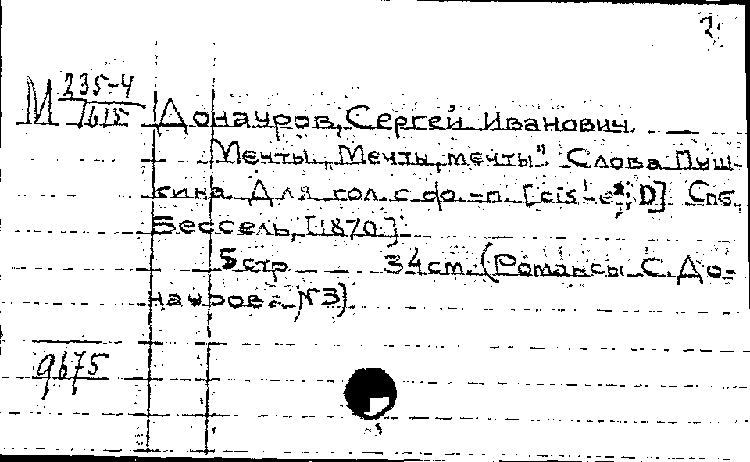 2.
М 235-4
1615
Донауров, Сергей Иванович.
Мечты. „Мечты, мечты". Слова Пуш-
кина. Для гол. с ф.-п. [cis¹-e²; D] Спб.
Бессель, [1870].
5 стр 34 см. (Романсы С. До-
наурова №3)
9675